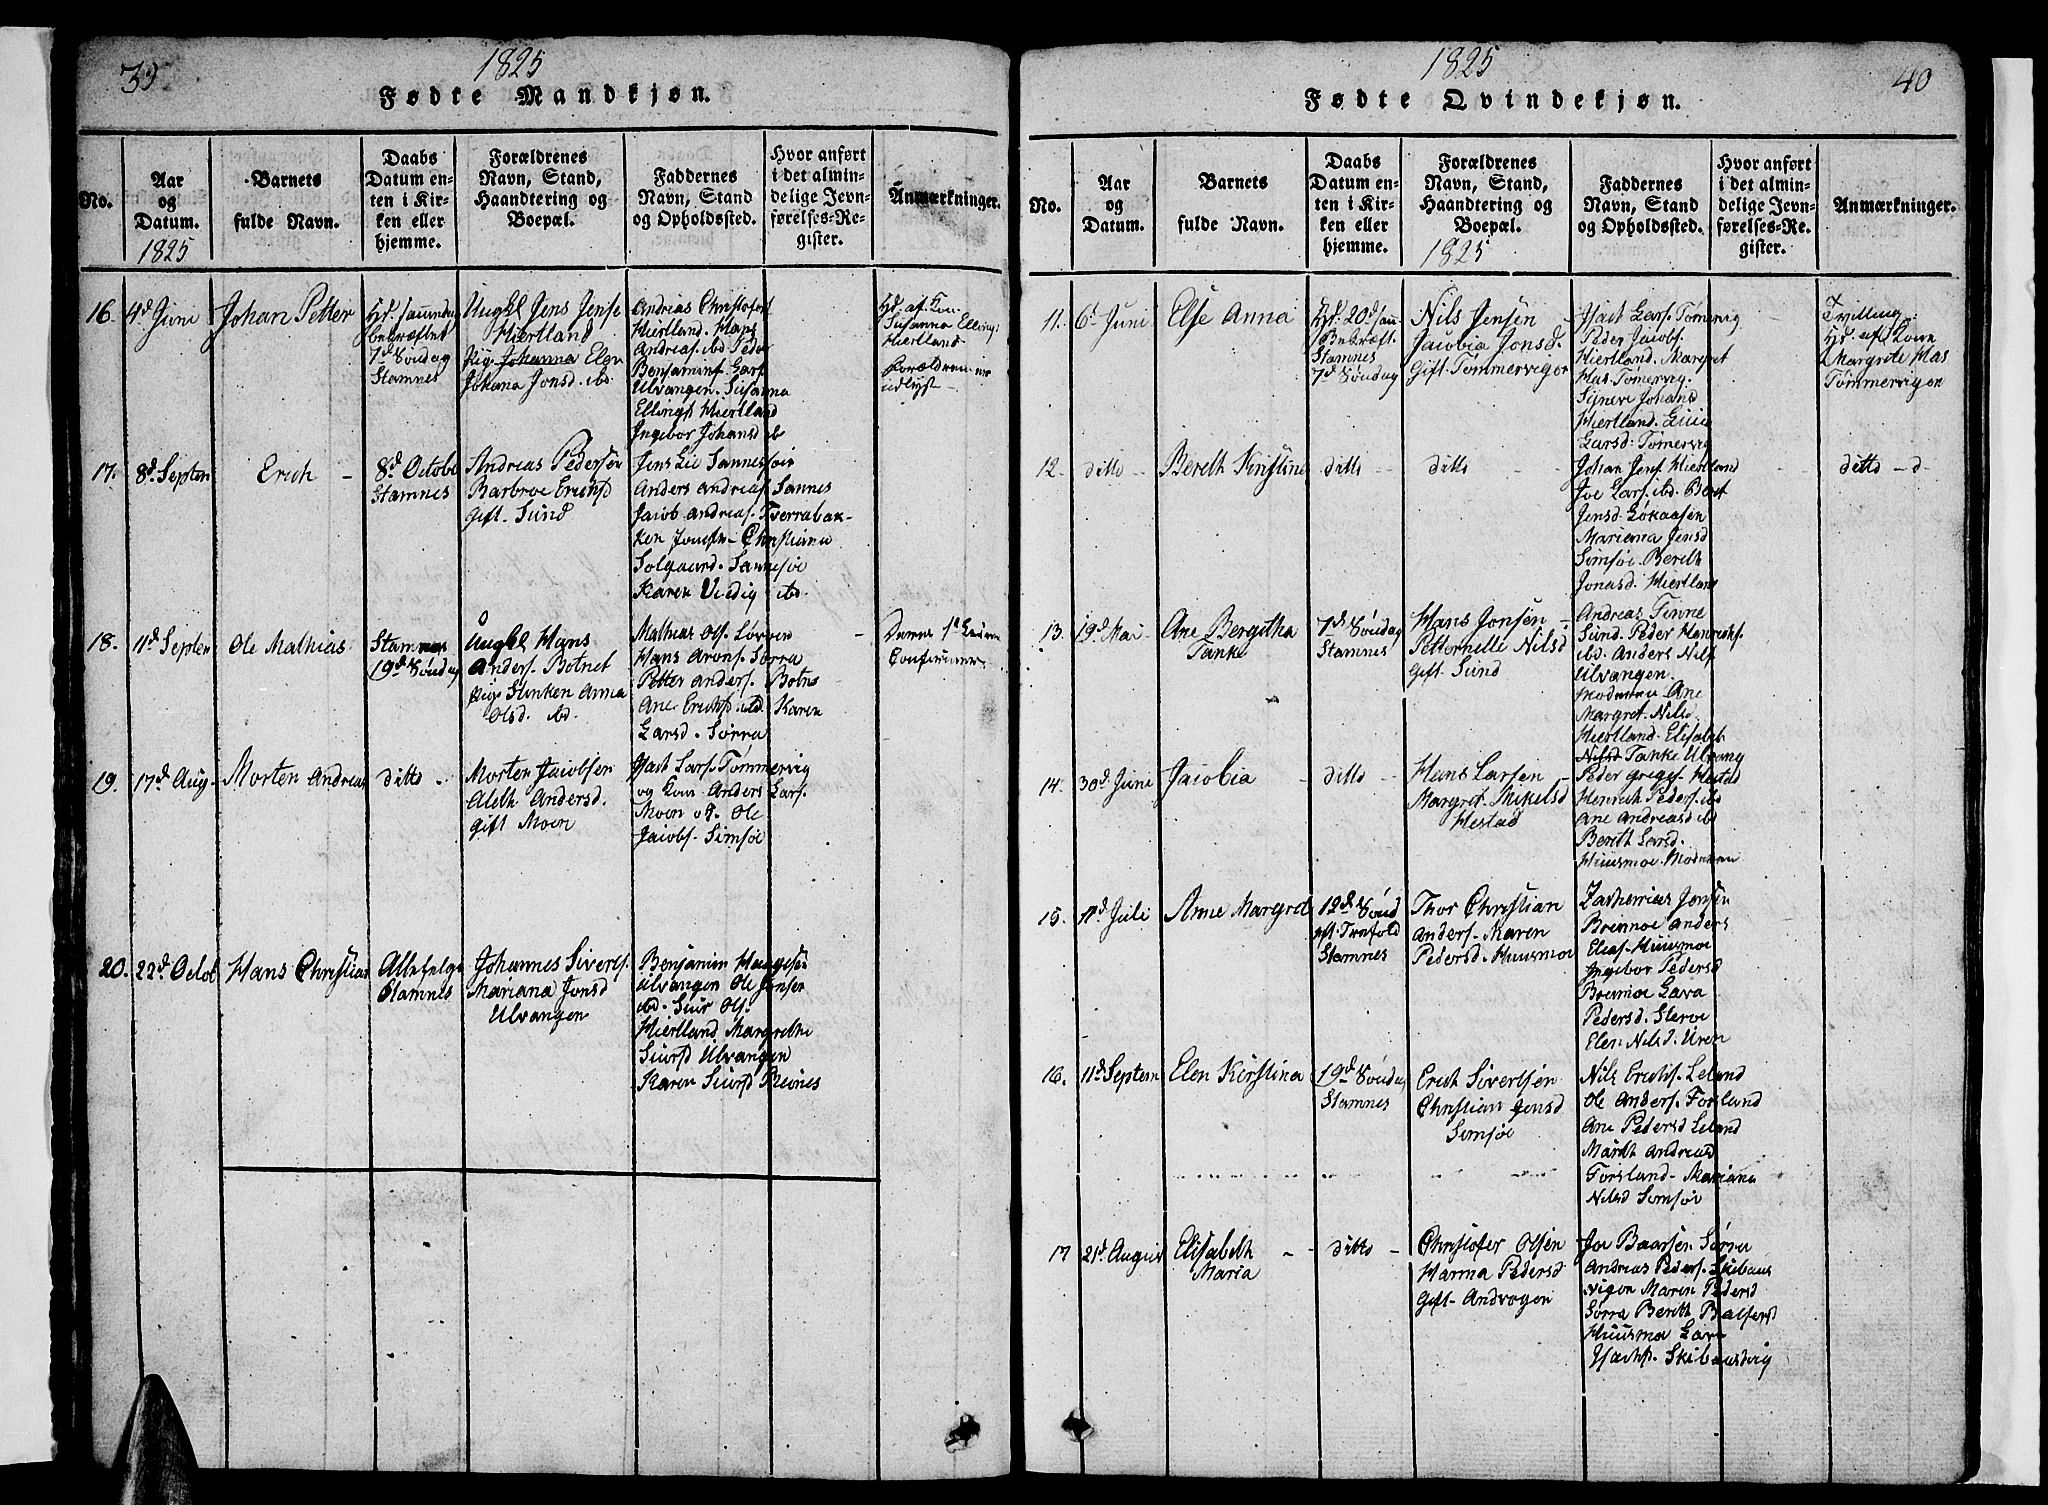 39
1825
Fødte Mandkjøn.
No.
Aar
og
Datum.
1825
Barnets
fulde Navn.
Daabs
Datum en-
ten i Kir-
ken eller
hjemme.
Forældrenes
Navn, Stand,
Haandtering og
Boepæl.
Faddernes
Navn, Stand
og Opholdssted.
Hvor anført
i det almin-
delige Jevn-
førelses-Re-
gister.
Anmærkninger.
16. 4d Juni
Johan Petter
Stamnes
7d Søndag
Ungkl Jens Jense
Hiertland
Pig. Johanna Elen
Johana Jonsd. ibd.
Andreas Christofers
Hiertland. Hans
Andreas. ibd. Peder
Benjamins. Lars
Ulvangen. Susanna
Ellingsd Hiertland
Ingebor Johansd ib
Hd. af Kon
Susanna Ellings
Hiertland
Forældrene er
udlyst
17. 8d Septem
Erich
8d Octobr
Stamnes
Andreas Pedersen
Barbroe Erichsd
gift. Sund
Jens Lie Sannessøin
Anders Andreas. Sannes
Jacob Andreas. Tverrabak-
ken Jomfr. Christiana
Solgaard. Sannesøe
Karen Vredig ibd.
18. 11d Septem
Ole Mathias
Stamnes
19d Søndag
Ungkl Hans
Anders. Botnet
Pige Stinken Anna
Olsd. ibd.
Mathias Ols. Løvren
Hans Arons. Sørra
Petter Anders. Botne
Ane Erichsd. ibd. Karen
Larsd. Sørra
Deres 1d Leierm
Confirmer
19. 17d Aug.
Morten Andreas
ditto
Morten Jacobsen
Aleth Andersd.
gift Moen
Hast Lars. Tømmervig
og Kone Anders Lars.
Moen og Ole
Jacobs. Simsøe
20. 22d Octob
Hans Christian
Allehelge
Stamnes
Johannes Siverts.
Mariana Jonsd
Ulvangen
Benjamin Haagese
Ulvangen Ole Jonsen
ibd. Siur Ols.
Hiertland Margrethe
Siursd Ulvangen
Karen Siursd Reines
40
1825
Fødte Qvindekjøn.
No.
Aar
og
Datum.
Barnets
fulde Navn.
Daabs
Datum en-
ten i Kir-
ken eller
hjemme.
Forældrenes
Navn, Stand,
Haandtering og
Boepæl.
1825
Faddernes
Navn, Stand
og Opholdssted.
Hvor anført
i det almin-
delige Jevn-
førelses-Re-
gister.
Anmærkninger.
11. 6d Juni
Else Anna
Bekræft.
Stamnes
7d Søndag
Nils Jensen
Jacobia Jonsd.
Gift. Tømmervigen
Hast Lars. Tømervig
Peder Jacobs.
Hiertland. Margret
Has. Tømervig.
Signeri Johansd
Hiertland. Lucia
Larsd. Tømervig
Tvilling
Hd. af Kone
Margrete Has
Tømmervigen
12. ditto
Bereth Kristine
ditto
ditto
Johan Jens. Hiertland
Joe Lars. ibd. Beret
Jensd. Løkaasen
Mariana Jensd
Simsøe. Bereth
Jonasd. Hiertland
ditto
13. 19d Mai
Ane Bergitha
Tanke
7d Søndag
Stamnes
Hans Jonsen
Petternelle Nilsd
gift. Sund
Andreas Finne
Sund. Peder Henrichs.
ibd. Anders Nils.
Ulvangen.
Modreene Ane
Margret. Nilsd.
Hiertland. Elisabet
Nilsd Tanke Ulvang
14. 30d Juni
Jacobia
ditto
Hans Larsen
Margret. Mikelsd
Hestad
Peder Gregs. Hestad
Henrich Peders. ibd
Ane Andreasd ibd
Bereth Larsd.
Huusmoe. Modreene
15. 11d Juli
Anne Margret
12d Sønd
eft. Trefold
Stamnes
Thor Christian
Anders. Maren
Pedersd. Huusmoe
Zacherias Jonsen
Breimoe Anders
Elias. Huusmoe
Ingebor Pedersd
Breimoe Lava
Pedersd. Sleroe
Elen Nilsd. Uren
16. 11d Septem
Elen Kirstina
19d Søndag
Stamnes
Erich Sivertsen
Christian Jensd
Simsøe
Nils Erichs. Leland
Ole Anders. Forsland
Ane Pedersd Leland
Marith Andreasd
Forsland. Mariana
Nilsd Somsøe
17 21d August
Elisabeth
Maria
ditto
Christofer Olsen
Hanna Pedersd
Gift. Andvogen
Joe Baarsen Sørra
Andreas Peders. Skibaas
vigen Maren Pedersd
Sørra Bereth Balsersd
Huusmoe Lava
Skibaasvig